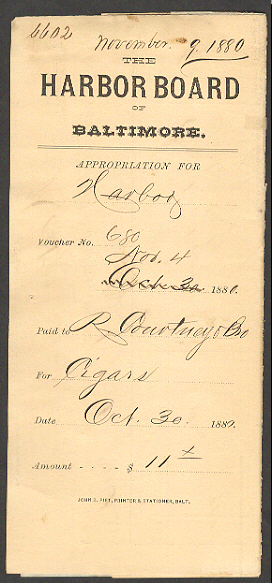 6602
November. 9, 1880
THE
HARBOR BOARD
OF
BALTIMORE.
APPROPRIATION FOR
Harbor
Voucher No. 680
Nov. 4
Oct. 30 1880.
Paid to R. Courtney & Bro
For Cigars
Date Oct. 30. 1880.
Amount - - - - $ 11
JOHN B. PIET, PRINTER & STATIONER, BALT.